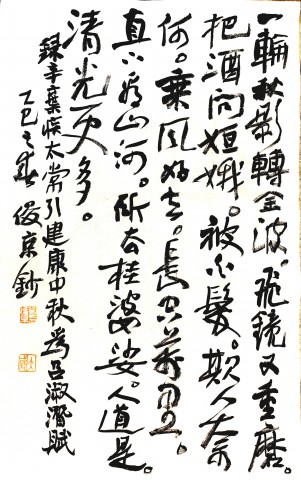 一輪秋影轉金波。飛鏡又重磨。
把酒問姮娥。被白髮。欺人奈
何。乘風好去。長空萬里。
直下看山河。斫去桂婆娑。人道是。
清光更多。
錄辛棄疾太常引建康中秋為呂淑潛賦
乙巳之春 俊京鈔